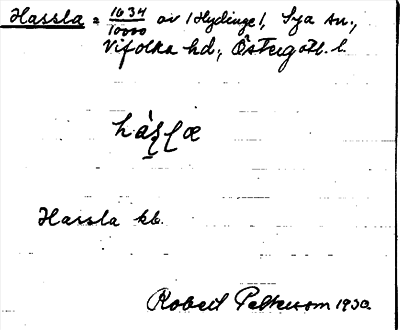 Hassla = 1634/10000 av /Hydinge/, Sya sn.,
Vifolka hd., Östergötl. l.
Hassla kb.
Robert Pettersson 1930.